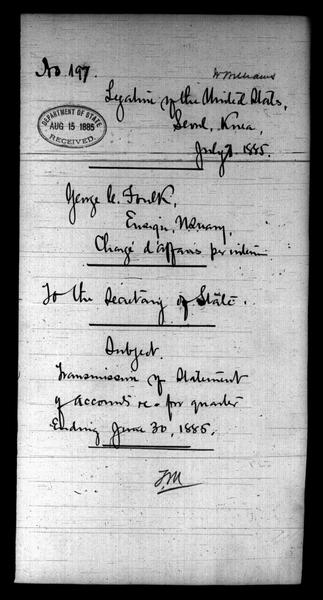 No. 197.
W Williams
Legation of the United States,
Seoul, Korea,
July 1885.
DEPARTMENT OF STATE
AUG 15 1885
RECEIVED.
George C. Foulk,
Ensign, U.S. Navy,
Chargé d'affaires per interim
To the Secretary of State.
Subject.
Transmission of Statement
of accounts &c. for quarter
Ending June 30, 1885.